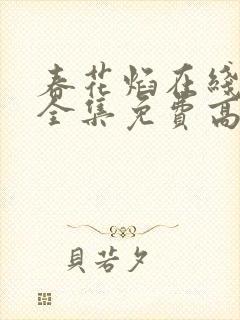 春花焰在线
全集免费高
貝若夕